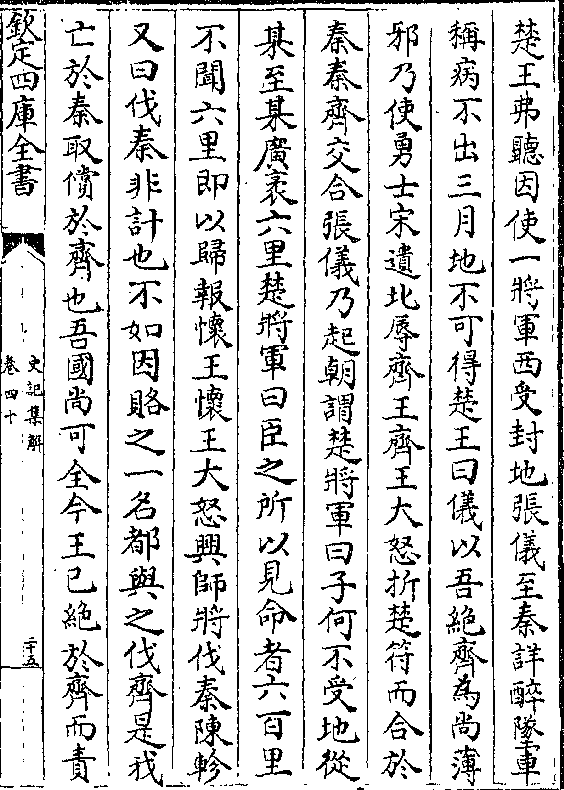 楚王弗聽因使一將軍西受封地張儀至秦詳醉隊車
稱病不出三月地不可得楚王曰儀以吾絶齊為尚薄
邪乃使勇士宋遺北辱齊王齊王大怒折楚符而合於
秦秦齊交合張儀乃起朝謂楚將軍曰子何不受地從
某至某廣袤六里楚將軍曰臣之所以見命者六百里
不聞六里即以歸報懷王懷王大怒興師將伐秦陳軫
又曰伐秦非計也不如因賂之一名都與之伐齊是我
亡於秦取償於齊也吾國尚可全今王已絶於齊而責
欽定四庫全書
史記集解
卷四十
二十五